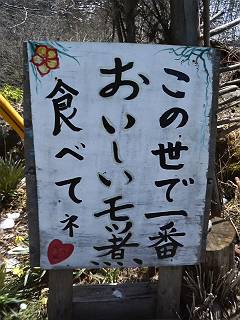 この世で一番
おいしいモツ煮
食べてネ